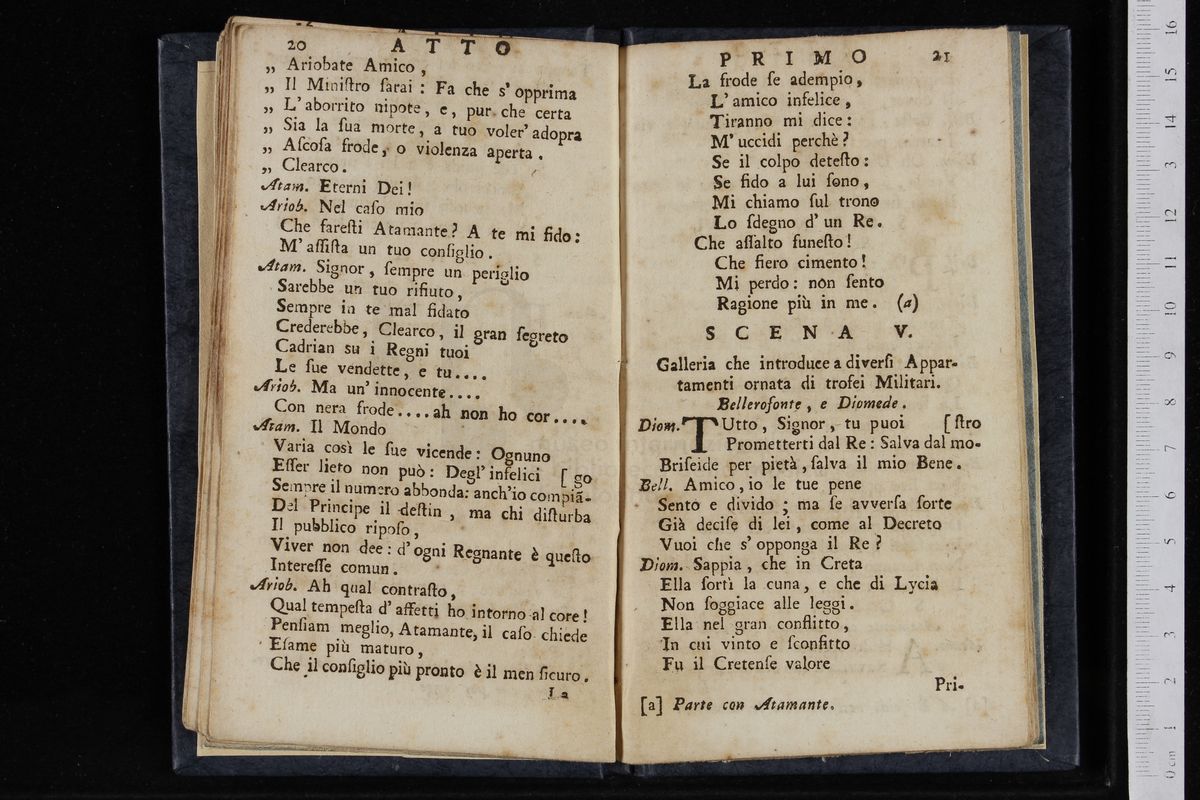 20 ATTO
„ Ariobate Amico,
„ Il Miniſtro ſarai : Fa che s' opprima
„ L' aborrito nipote, e, pur che certa
„ Sia la ſua morte, a tuo voler' adopra
„ Aſcoſa frode, o violenza aperta.
„ Clearco.
Atam. Eterni Dei!
Ariob. Nel caſo mio
Che fareſti Atamante? A te mi fido:
M' aſſiſta un tuo conſiglio.
Atam. Signor, ſempre un periglio
Sarebbe un tuo rifiuto,
Sempre in te mal fidato
Crederebbe, Clearco, il gran ſegreto
Cadrian su i Regni tuoi
Le ſue vendette, e tu....
Ariob. Ma un' innocente....
Con nera frode....ah non ho cor....
Atam. Il Mondo
Varia così le ſue vicende: Ognuno
Eſſer lieto non può: Degl' infelici [ go
Sempre il numero abbonda: anch'io compiã-
Del Principe il deſtin, ma chi diſturba
Il pubblico ripoſo,
Viver non dee: d' ogni Regnante è queſto
Intereſſe comun.
Ariob. Ah qual contraſto,
Qual tempeſta d' affetti ho intorno al core!
Penſiam meglio, Atamante, il caſo chiede
Eſame più maturo,
Che il conſiglio più pronto è il men ſicuro.
La
PRIMO 21
La frode ſe adempio,
L' amico infelice,
Tiranno mi dice:
M' uccidi perchè?
Se il colpo deteſto:
Se fido a lui ſono,
Mi chiamo ſul trono
Lo ſdegno d' un Re.
Che aſſalto funeſto!
Che fiero cimento!
Mi perdo: non ſento
Ragione più in me. (a)
SCENA V.
Galleria che introduce a diverſi Appar-
tamenti ornata di trofei Militari.
Bellerofonte, e Diomede.
Diom. TUtto, Signor, tu puoi [ ſtro
Prometterti dal Re: Salva dal mo-
Briſeide per pietà, ſalva il mio Bene.
Bell. Amico, io le tue pene
Sento e divido; ma ſe avverſa ſorte
Già deciſe di lei, come al Decreto
Vuoi che s' opponga il Re?
Diom. Sappia, che in Creta
Ella ſortì la cuna, e che di Lycia
Non ſoggiace alle leggi.
Ella nel gran conflitto,
In cui vinto e ſconfitto
Fu il Cretenſe valore
Pri-
[a] Parte con Atamante.
0 cm 1 2 3 4 5 6 7 8 9 10 11 12 13 14 15 16